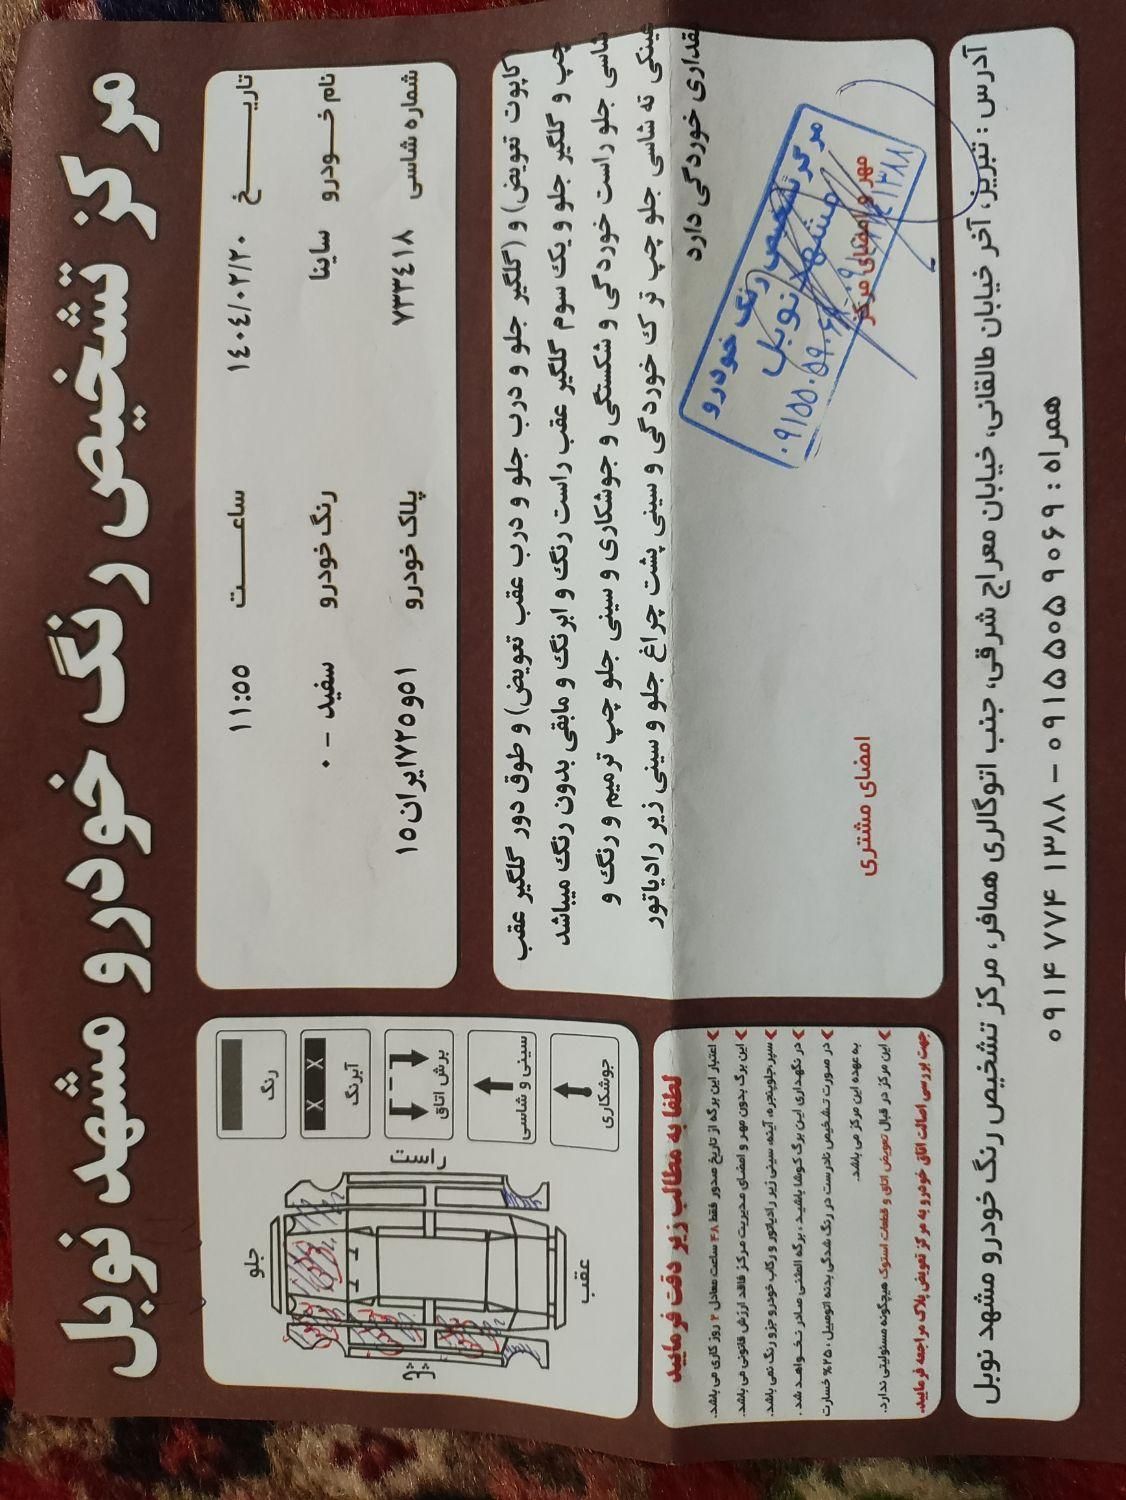 مرکز تشخیص رنگ خودرو مشهد نوبل
تاریـــــخ ۱۴۰۴/۰۲/۲۰ ساعـــــت ۱۱:۵۵
نام خــودرو ساینا رنگ خودرو سفید - ۰
شماره شاسی ۷۳۳۴۱۸ پلاک خودرو ۵۱و۷۲۵ایران۱۵
کاپوت تعویض) و (گلگیر جلو و درب جلو و درب عقب تعویض) و طوق دور گلگیر عقب
چپ و گلگیر جلو و یک سوم گلگیر عقب راست رنگ و ابرنگ و مابقی بدون رنگ میباشد
شاسی جلو راست خوردگی و شکستگی و جوشکاری و سینی جلو چپ ترمیم و رنگ و
عینکی ته شاسی جلو چپ ترک خوردگی و سینی پشت چراغ جلو و سینی زیر رادیاتور
مقداری خوردگی دارد
مرکز تشخیص رنگ خودرو
مشهد نوبل
مهر و امضای مرکز
امضای مشتری
رنگ
آبرنگ
برش اتاق
سینی و شاسی
جوشکاری
جلو
راست
چپ
عقب
لطفا به مطالب زیر دقت فرمایید
اعتبار این برگه از تاریخ صدور فقط ۴۸ ساعت معادل ۲ روز کاری می باشد.
این برگ بدون مهر و امضای مدیریت مرکز فاقد ارزش قانونی می باشد.
سپر، جلوپنجره، آینه، سینی زیر رادیاتور و رکاب خودرو جزو رنگ نمی باشد.
در نگهداری این برگ کوشا باشید، برگه المثنی صادر نخواهد شد.
در صورت تشخیص نادرست در رنگ شدگی بدنه اتومبیل، ۲۵% خسارت
به عهده این مرکز می باشد.
این مرکز در قبال تعویض اتاق و قطعات استوک هیچگونه مسئولیتی ندارد.
جهت بررسی اصالت اتاق خودرو به مرکز تعویض پلاک مراجعه فرمایید.
آدرس : تبریز، آخر خیابان طالقانی، خیابان معراج شرقی، جنب اتوگالری همافر، مرکز تشخیص رنگ خودرو مشهد نوبل
همراه : ۰۹۱۵۵۰۵۹۰۶۹ - ۰۹۱۴۷۷۴۱۳۸۸